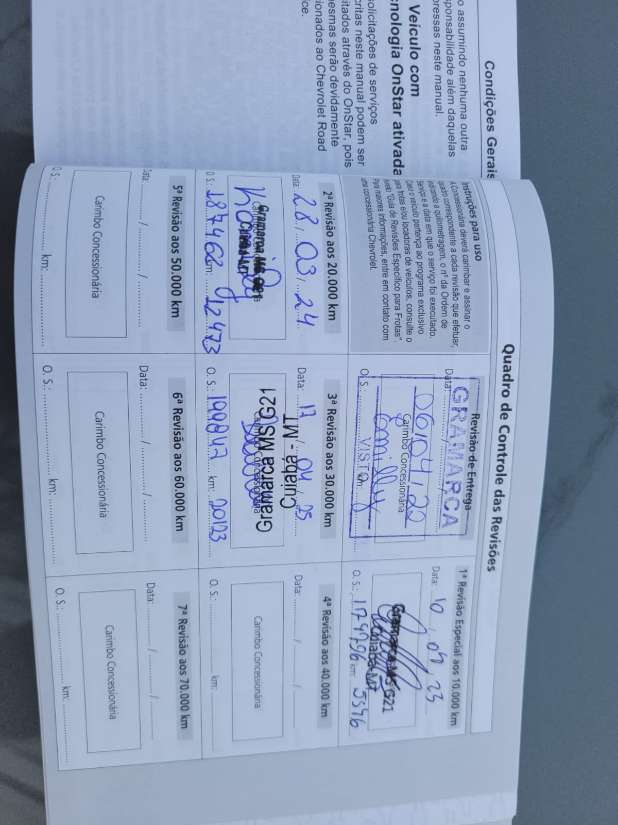 Condições Gerais
o assumindo nenhuma outra
ponsabilidade além daquelas
pressas neste manual.
Veículo com
nologia OnStar ativada
solicitações de serviços
critas neste manual podem ser
itados através do OnStar, pois
esmas serão devidamente
ionados ao Chevrolet Road
ce.
Quadro de Controle das Revisões
Instruções para uso
A Concessionária deverá carimbar e assinar o
quadro correspondente a cada revisão que efetuar,
indicando a quilometragem, o nº da Ordem de
Serviço e a data em que o serviço foi executado.
Caso o veículo pertença ao programa exclusivo
para frotas e/ou locadoras de veículos, consulte o
"Guia de Revisões Específico para Frotas".
Para maiores informações, entre em contato com
uma concessionária Chevrolet.
Revisão de Entrega
Data:
GRAMARCA
06/04/22
Carimbo Concessionária
Emilly
O. S.: VISTO
1ª Revisão Especial aos 10.000 km
Data: 16 / 09 / 23
Gramarca MS G21
Cuiabá-MT
O. S.: 174796 km: 5546
2ª Revisão aos 20.000 km
Data: 28 / 03 / 24
Gramarca MS G21
O. S.: 187468 km: 12473
3ª Revisão aos 30.000 km
Data: 17 / 04 / 25
Cuiabá - MT
Carimbo Concessionária
Gramarca MS/G21
O. S.: 199847 km: 20123
4ª Revisão aos 40.000 km
Data: / /
Carimbo Concessionária
O. S.: km:
5ª Revisão aos 50.000 km
Data: / /
Carimbo Concessionária
O. S.: km:
6ª Revisão aos 60.000 km
Data: / /
Carimbo Concessionária
O. S.: km:
7ª Revisão aos 70.000 km
Data: / /
Carimbo Concessionária
O. S.: km: